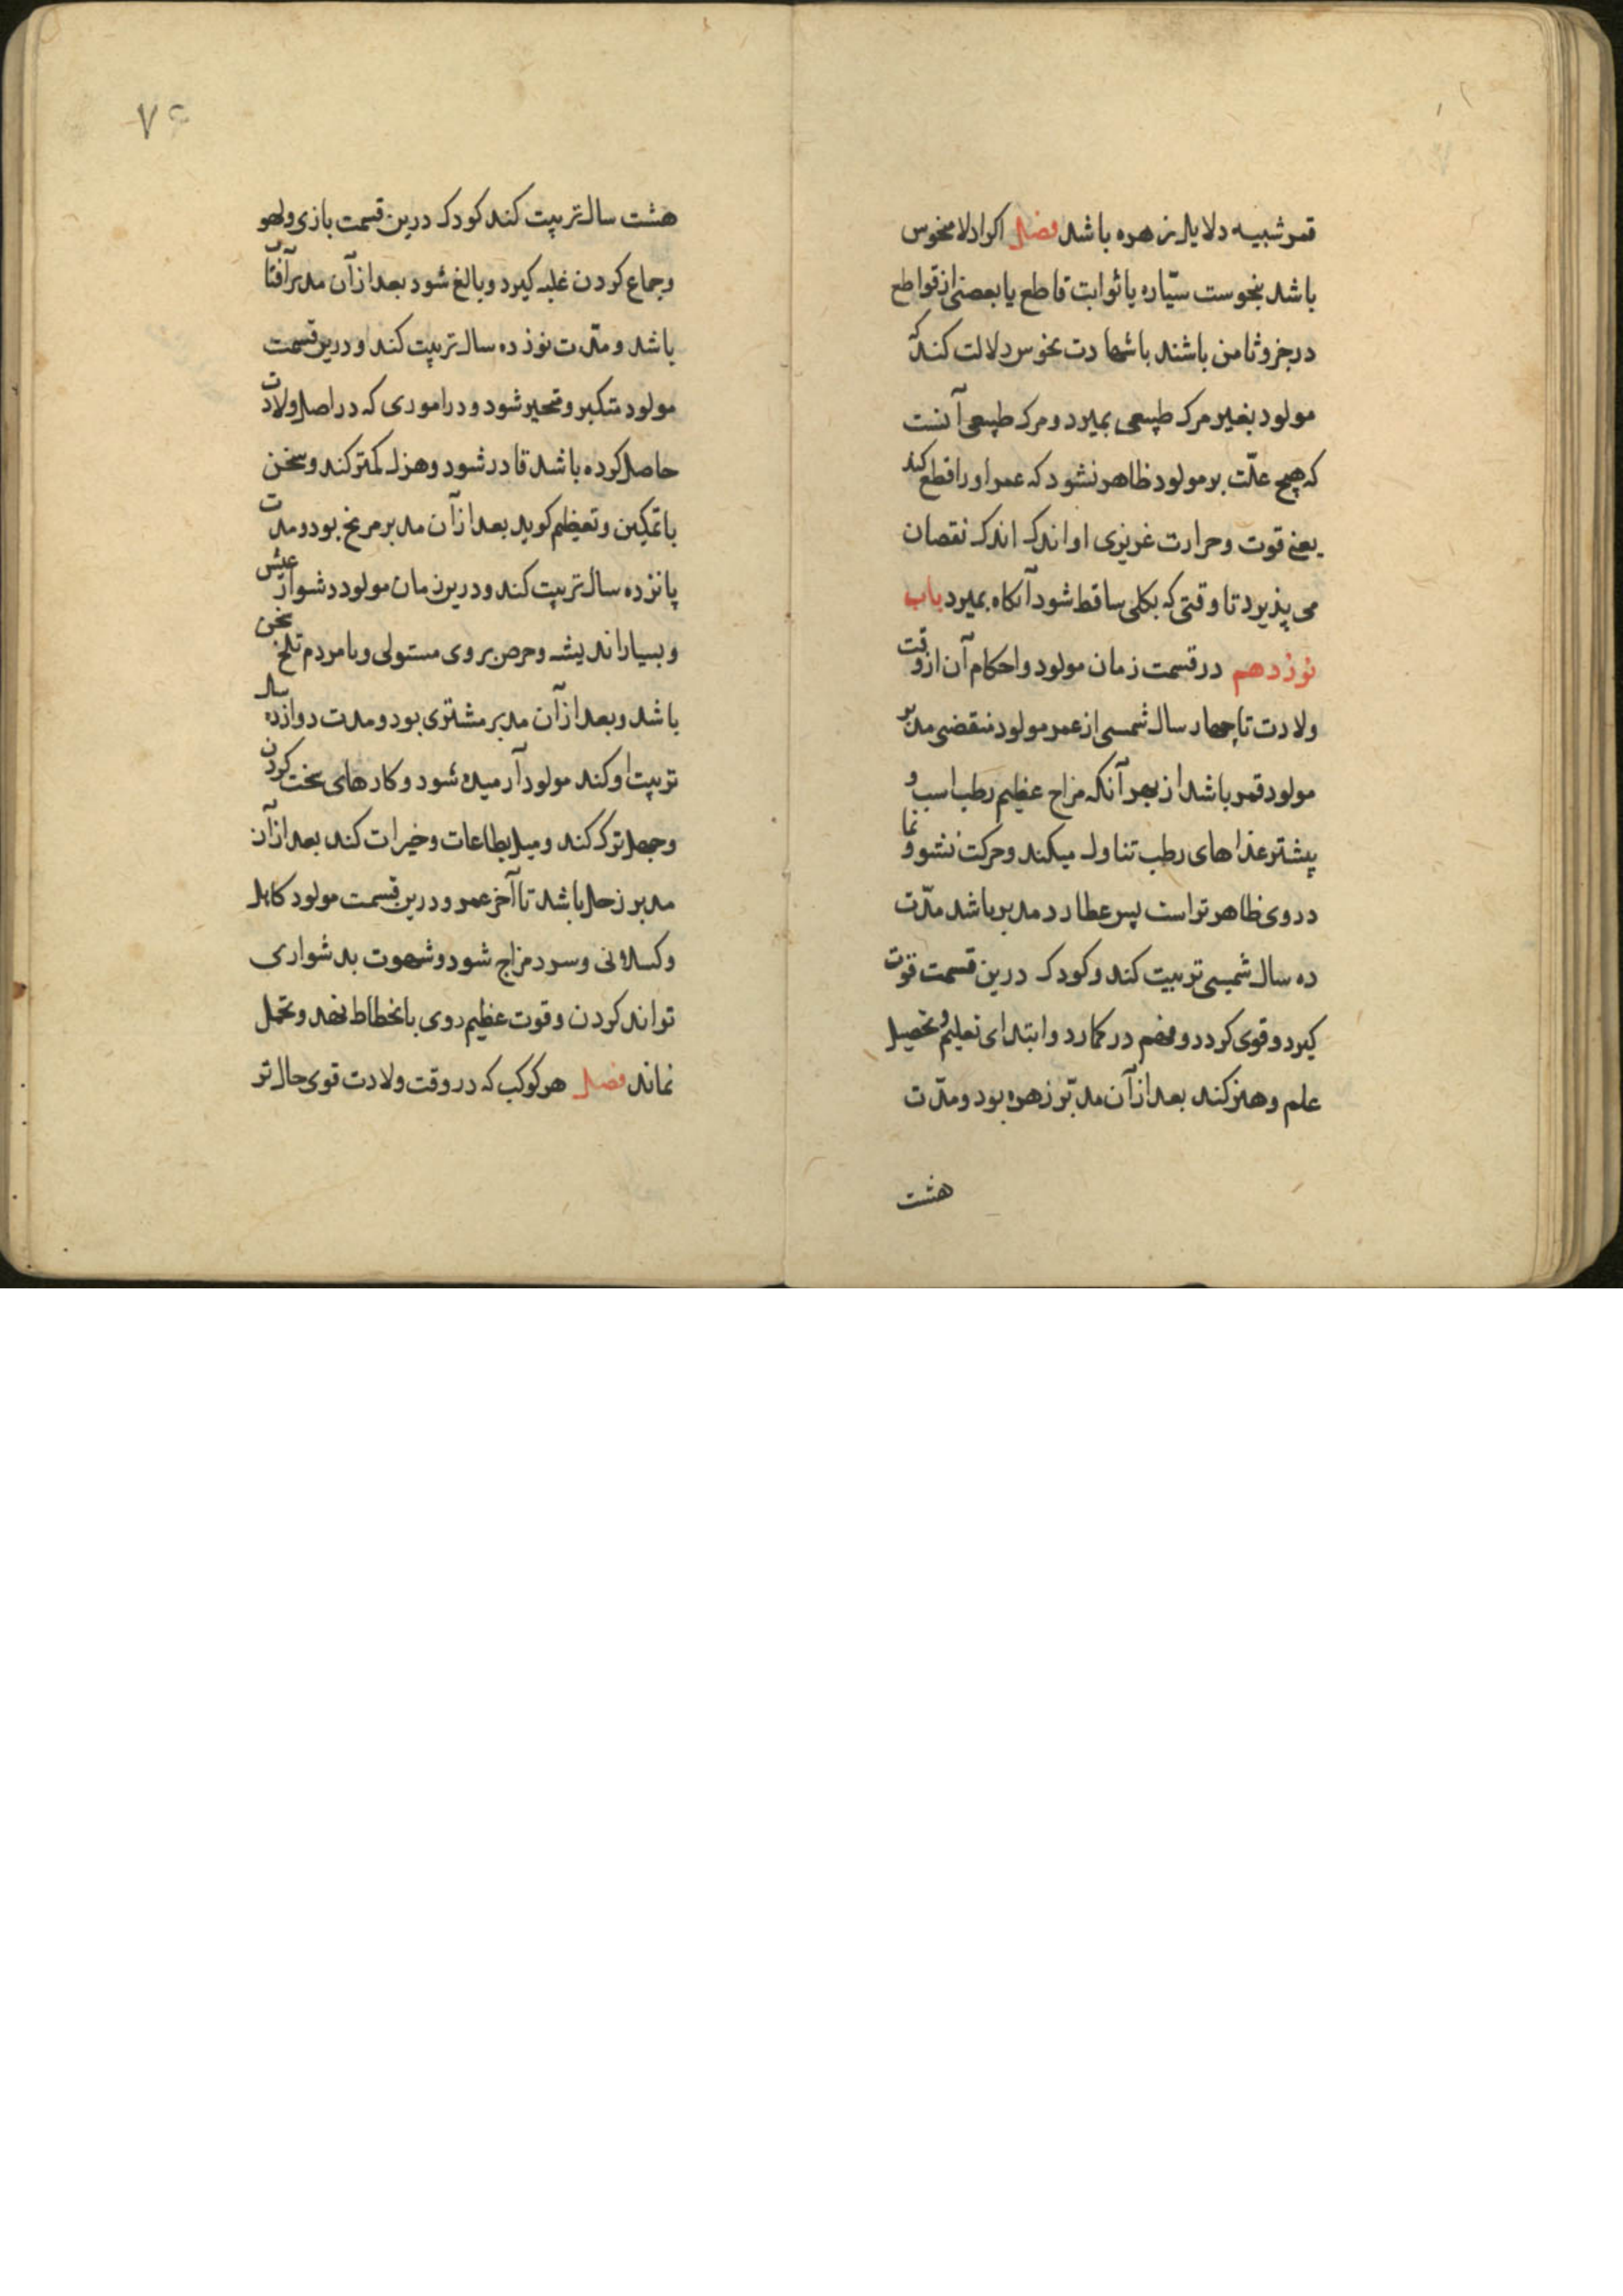 قمر شبیه دلایل زهره باشد فصل اکر ادلا منحوس
باشد بنحوست سیّاره یا ثوابت قاطع یا بعضی از قواطع
در جزو ثامن باشند با شهادت نحوس دلالت کند که
مولود بغیر مرک طبیعی بمیرد و مرک طبیعی آنست
که هیچ علّت بر مولود ظاهر نشود که عمر او را قطع کند
یعنی قوت و حرارت غریزی او اندک اندک نقصان
می پذیرد تا وقتی که بکلی ساقط شود آنکاه بمیرد باب
نوزدهم در قسمت زمان مولود و احکام آن از وقت
ولادت تا چهار سال شمسی از عمر مولود منقضی مدبر
مولود قمر باشد از بهر آنکه مزاج عظیم رطب است و
پیشتر غذاهای رطب تناول میکند و حرکت نشو و نما
در وی ظاهر تر است پس عطارد مدبر باشد مدّت
ده سال شمسی تربیت کند و کودک درین قسمت قوت
کیرد و قوی کردد و فهم در کار آرد و ابتدای تعلیم و تحصیل
علم و هنر کند بعد از آن مدبّر زهره بود و مدّت
هشت
٧٤
هشت سال تربیت کند کودک درین قسمت بازی و لهو
و جماع کردن غلبه کیرد و بالغ شود بعد از آن مدبر آفتاب
باشد و مدّت نوزده سال تربیت کند او درین قسمت
مولود متکبر و متحیر شود و در اموری که در اصل ولادت
حاصل کرده باشد قادر شود و هزل کمتر کند و سخن
با تمکین و تعظیم کوید بعد از آن مدبر مریخ بود و مدت
پانزده سال تربیت کند و درین زمان مولود دشوار عیش
و بسیار اندیشه و حرص بر وی مستولی و با مردم تلخ سخن
باشد و بعد از آن مدبر مشتری بود و مدت دوازده سال
تربیت او کند مولود آرمیده شود و کارهای سخت کردن
و جهل ترک کند و میل بطاعات و خیرات کند بعد از آن
مدبر زحل باشد تا آخر عمر و درین قسمت مولود کاهل
و کسلانی و سرد مزاج شود و شهوت بدشواری
تواند کردن و قوت عظیم روی بانحطاط نهد و تحمل
نماند فصل هر کوکب که در وقت ولادت قوی حال تر